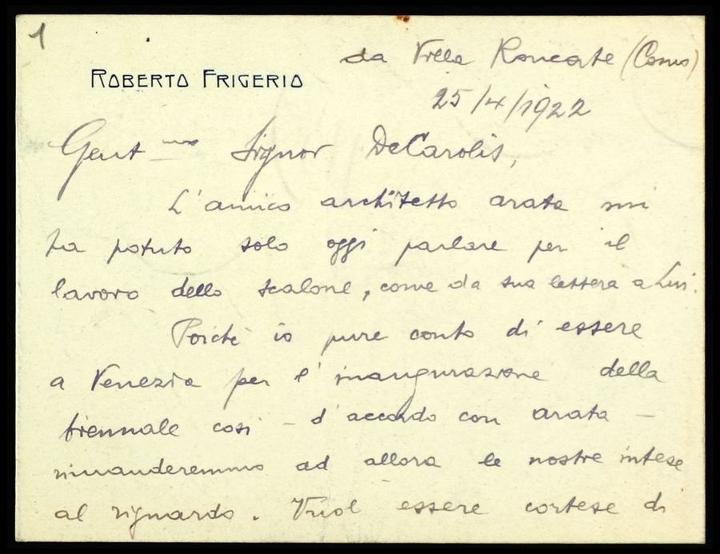 1
da Villa Roncate (Como)
ROBERTO FRIGERIO
25/4/1922
Gent mo Signor DeCarolis,
L'amico architetto arata mi
ha potuto solo oggi parlare per il
lavoro dello scalone, come da sua lettera a Lui.
Poichè io pure conto di essere
a Venezia per l'inaugurazione della
biennale così – d'accordo con arata –
rimanderemmo ad allora le nostre intese
al riguardo. Vuol essere cortese di